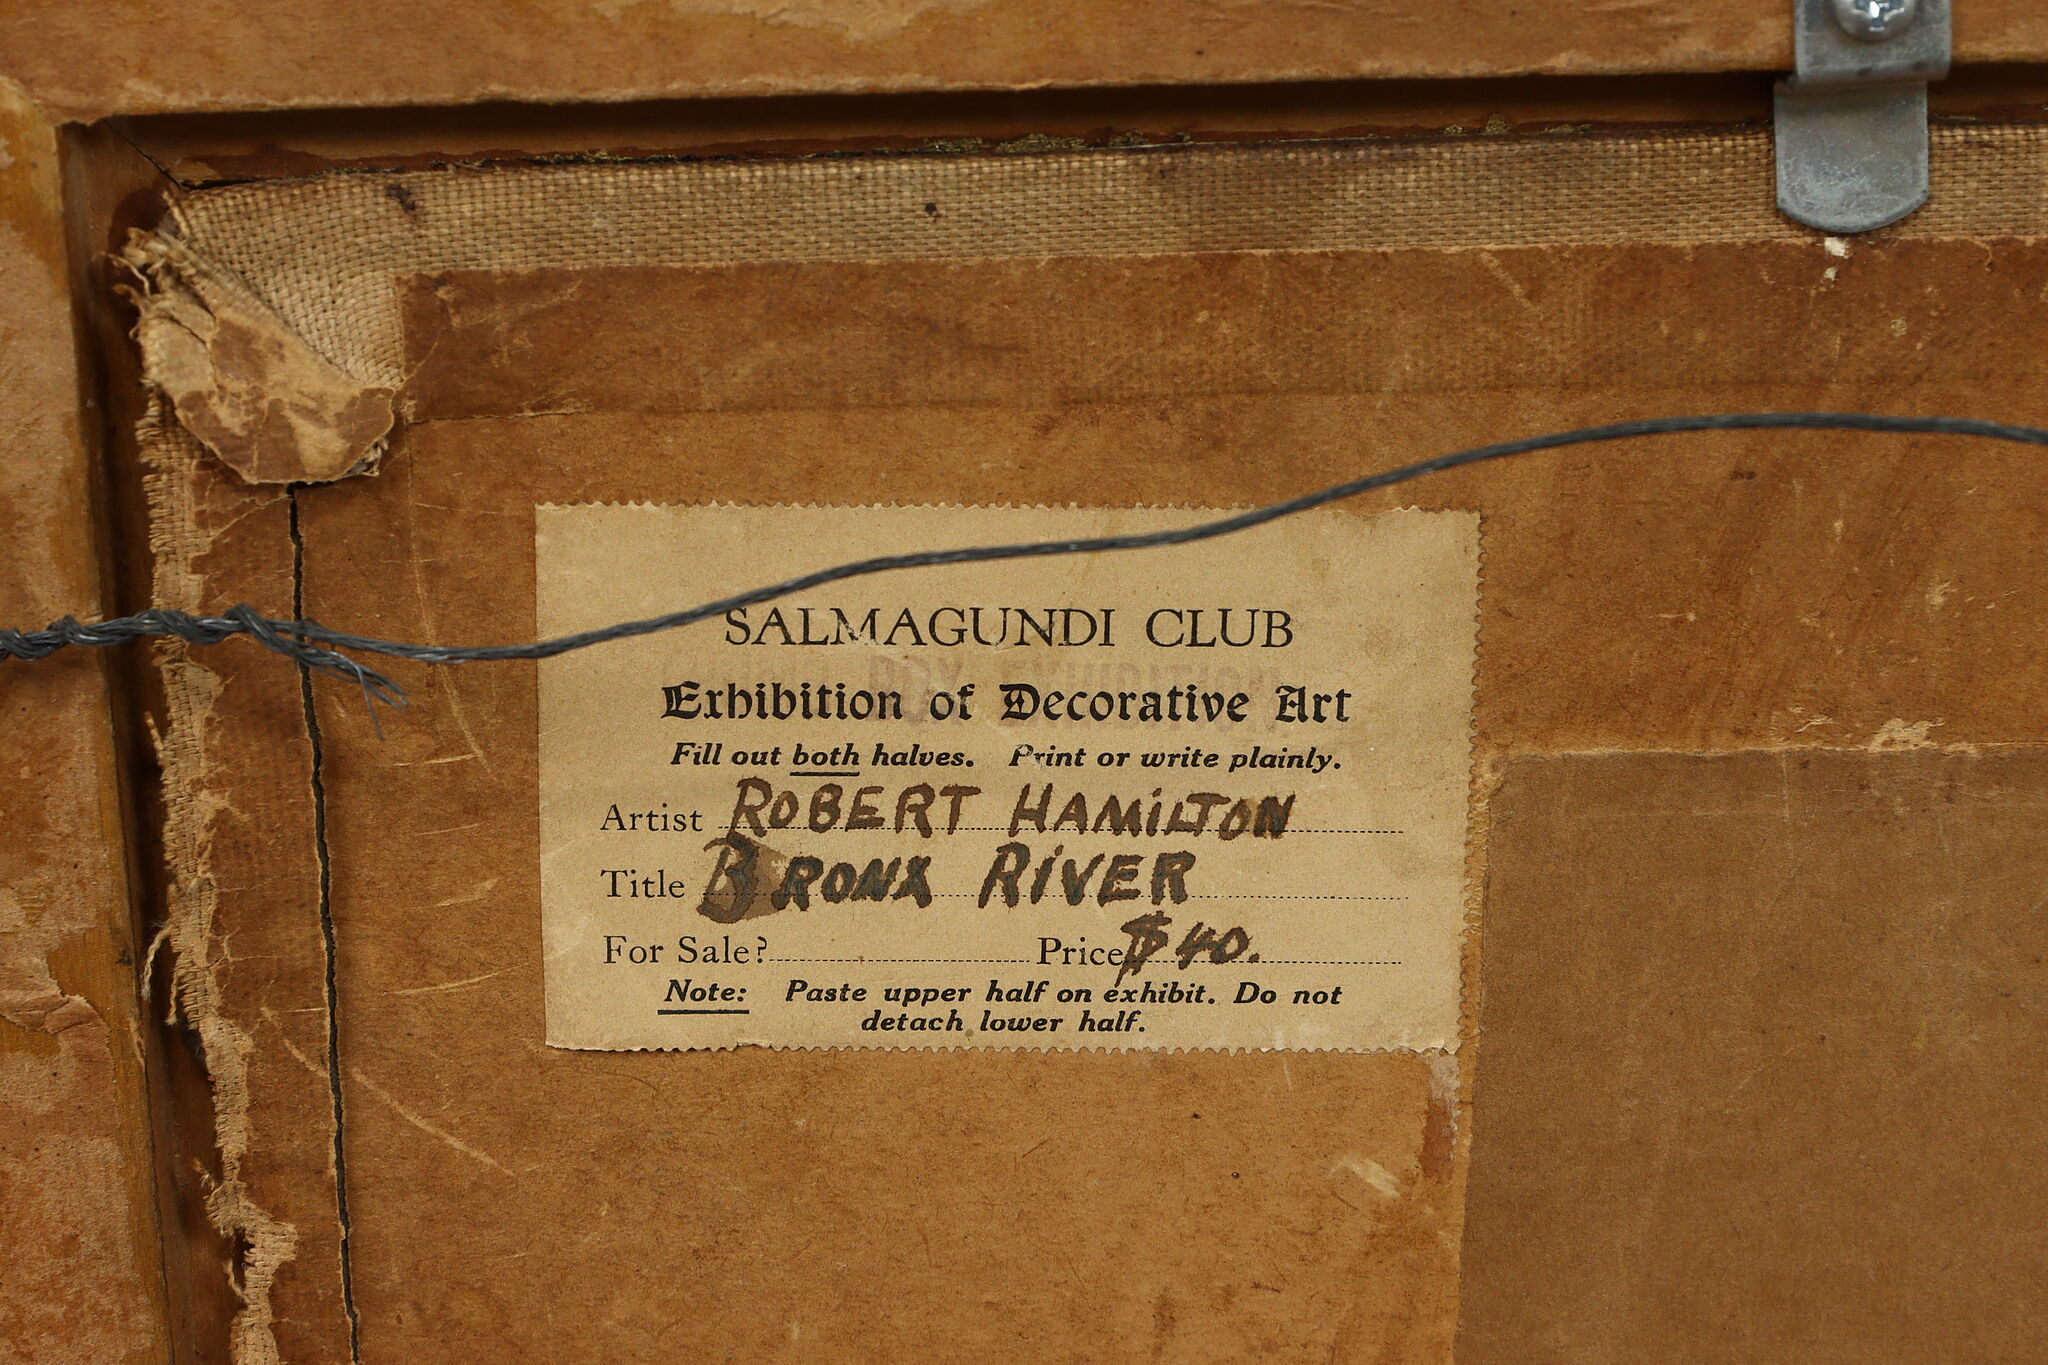 SALMAGUNDI CLUB
EXHIBITION
Exhibition of Decorative Art
Fill out both halves. Print or write plainly.
Artist ROBERT HAMILTON
Title BRONX RIVER
For Sale? Price $40.
Note: Paste upper half on exhibit. Do not
detach lower half.